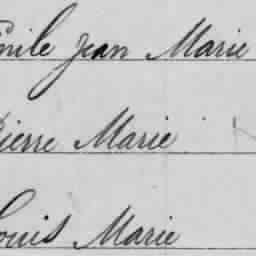 Emile Jean Marie
Pierre Marie
Louis Marie